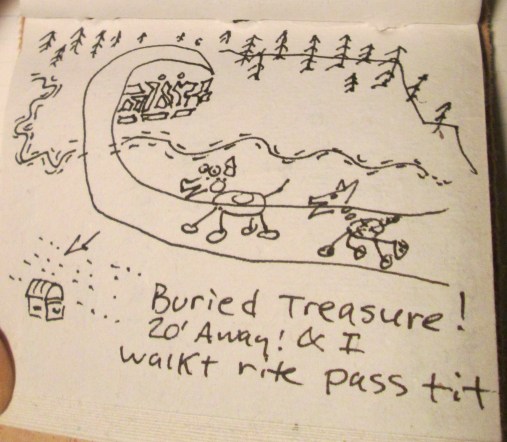 Buried Treasure!
20' Away! & I
walkt rite pass tit